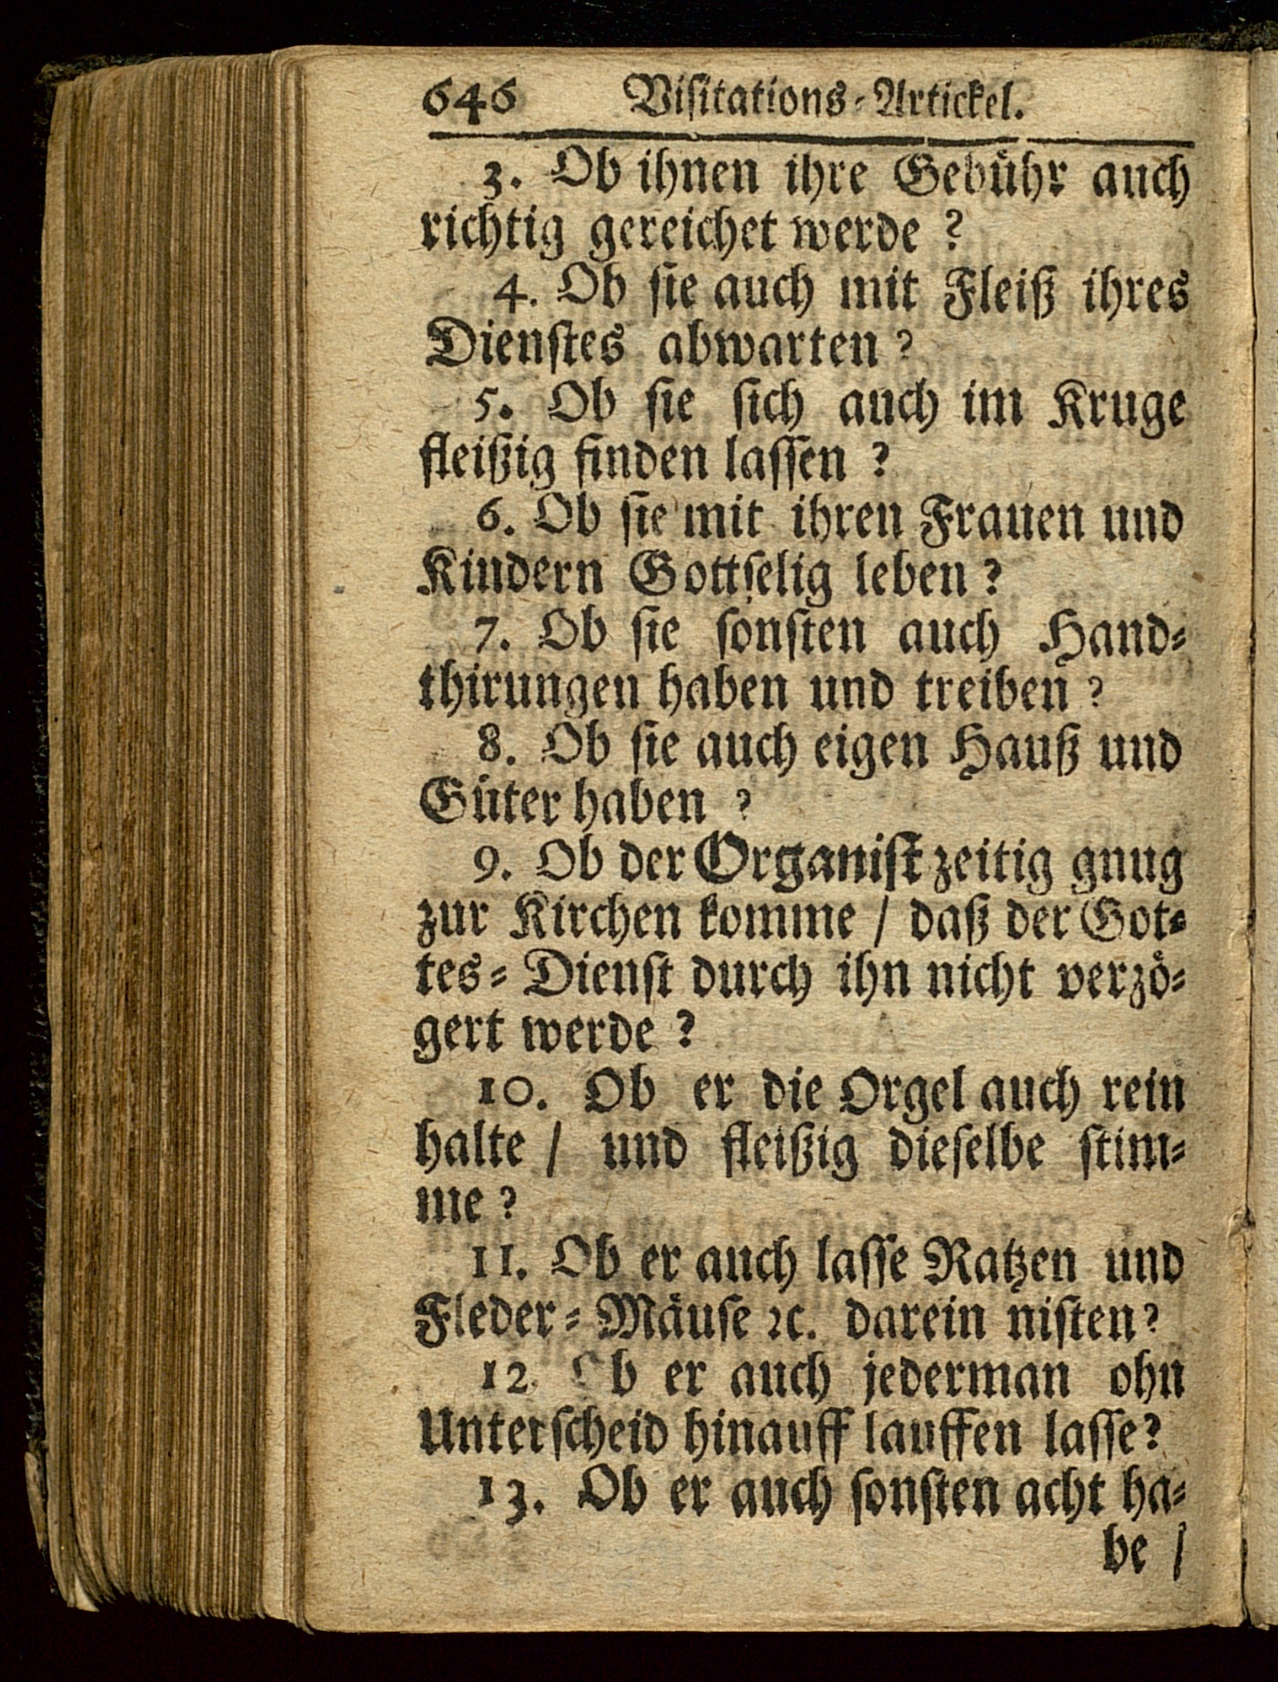 646 Visitations-Artickel.
3. Ob ihnen ihre Gebühr auch
richtig gereichet werde ?
4. Ob sie auch mit Fleiß ihres
Dienstes abwarten ?
5. Ob sie sich auch im Kruge
fleißig finden lassen ?
6. Ob sie mit ihren Frauen und
Kindern Gottselig leben ?
7. Ob sie sonsten auch Hand-
thirungen haben und treiben ?
8. Ob sie auch eigen Hauß und
Güter haben ?
9. Ob der Organist zeitig gnug
zur Kirchen komme / daß der Got-
tes-Dienst durch ihn nicht verzö-
gert werde ?
10. Ob er die Orgel auch rein
halte / und fleißig dieselbe stim-
me ?
11. Ob er auch lasse Ratzen und
Fleder-Mäuse ꝛc. darein nisten?
12. Ob er auch jederman ohn
Unterscheid hinauff lauffen lasse?
13. Ob er auch sonsten acht ha-
be /